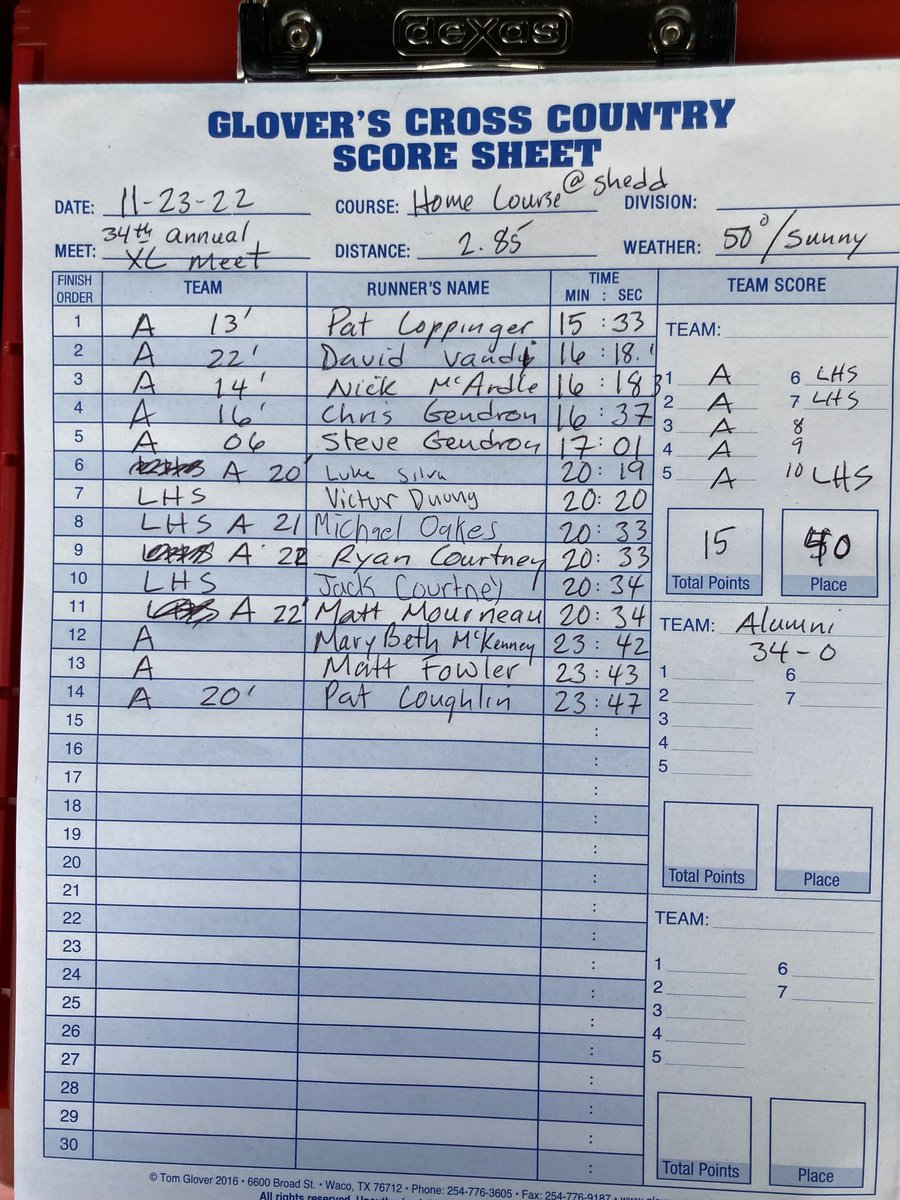 dexas
GLOVER'S CROSS COUNTRY
SCORE SHEET
DATE: 11-23-22 COURSE: Home Course @ shedd DIVISION:
MEET: 34th annual XC meet DISTANCE: 2.85 WEATHER: 50°/Sunny
FINISH ORDER TEAM RUNNER'S NAME TIME MIN : SEC TEAM SCORE
1 A 13' Pat Coppinger 15 : 33
2 A 22' David Vandi 16 : 18.
3 A 14' Nick McArdle 16 : 18
4 A 16' Chris Gendron 16 : 37
5 A 06 Steve Gendron 17 : 01
6 A 20' Luke Silva 20 : 19
7 LHS Victor Duong 20 : 20
8 LHS A 21 Michael Oakes 20 : 33
9 A 22 Ryan Courtney 20 : 33
10 LHS Jack Courtney 20 : 34
11 A 22' Matt Mourneau 20 : 34
12 A Mary Beth McKenney 23 : 42
13 A Matt Fowler 23 : 43
14 A 20' Pat Coughlin 23 : 47
15 :
16 :
17 :
18 :
19 :
20 :
21 :
22 :
23 :
24 :
25 :
26 :
27 :
28 :
29 :
30 :
TEAM:
1 A 6 LHS
2 A 7 LHS
3 A 8
4 A 9
5 A 10 LHS
15 Total Points
Place
TEAM: Alumni
34-0
1 6
2 7
3
4
5
Total Points Place
TEAM:
1 6
2 7
3
4
5
Total Points Place
© Tom Glover 2016 • 6600 Broad St. • Waco, TX 76712 • Phone: 254-776-3605 • Fax: 254-776-9187 •
All rights reserved.